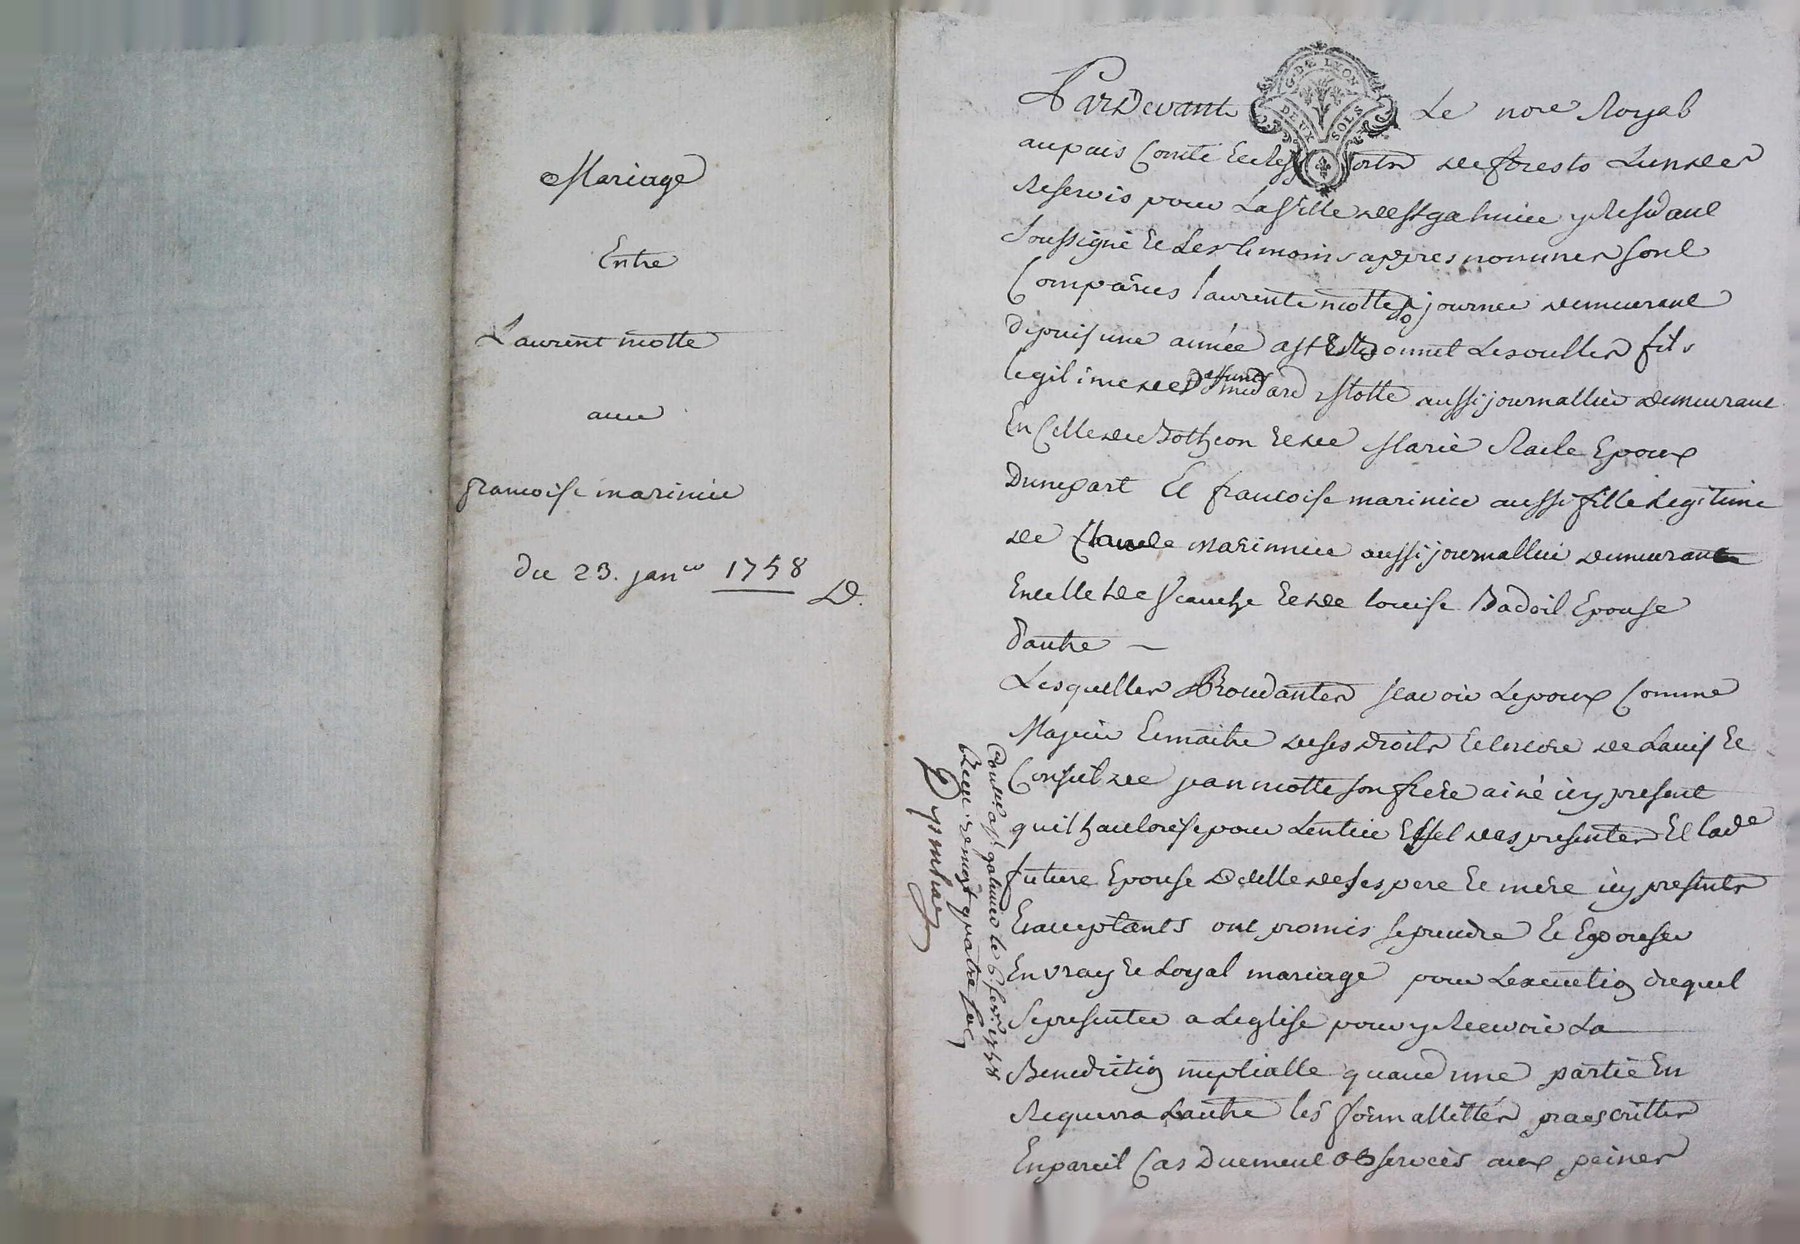 Mariage
Entre
Laurent motte
avec
francoise marinier
du 23. janer 1758
D.
G. DE LYON
DEUX SOLS
Pardevant Le nore Royal
au pais Comté de forests Lun des
Reservés pour La ville de st galmier y Residant
soussigné et Les temoins appres nommer sont
Comparues laurent motte journer demeurant
depuis une année a st donnet Les oulles fils
legitime de deffunct medard Motte aussi journallier demeurant
En Celle de Et de Marie Epoux
Dunepart Et francoise marinier aussi fille Legitime
de Claude marinnier aussi journallier demeurant
En celle de Et de louise Badoil Epouse
D'autre
Lesquelles scavoir Lepoux Comme
Majeur Et maitre de ses droits Et Encore de Lavis Et
Conseil de jean motte son frere ainé icy present
qui Lentier Effet des presentes Et lade
future Epouse De celle de ses pere Et mere icy presents
Et acceptants ont promis se prendre Et Epouser
En vray Et Loyal mariage pour Lexecution duquel
se presenter a Leglise pour y Recevoir La
Benediction nuptialle quand une partie En
Requerra Lautre les formalittés praescrittes
En pareil Cas Duement observéés aux peines
galmier le 6. fevr. 1758
Reçu vingt quatre sols